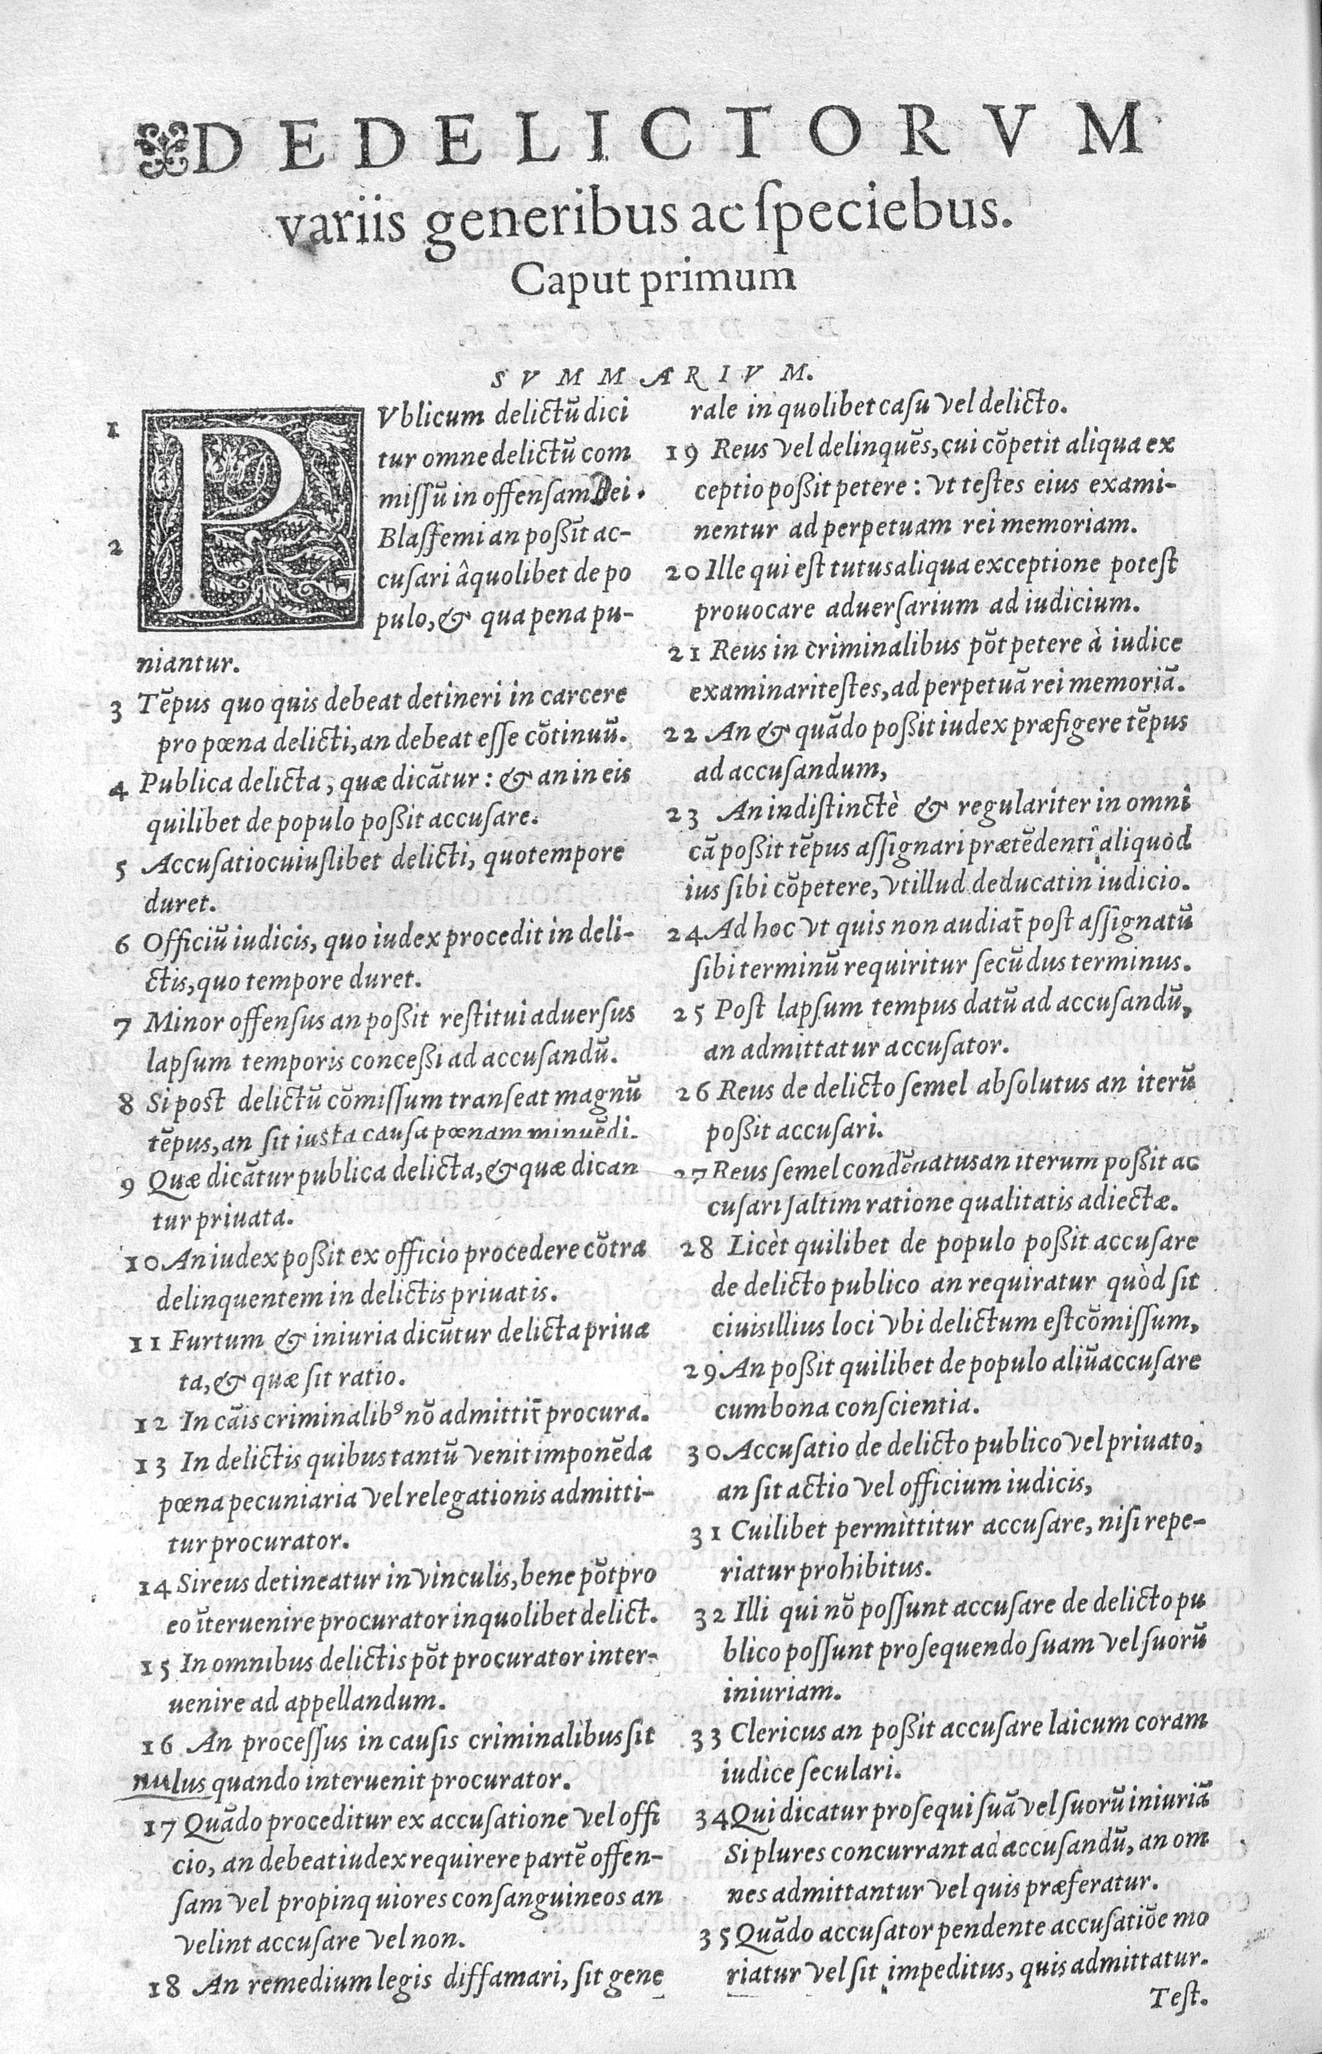 DE DELICTORVM
variis generibus ac ſpeciebus.
Caput primum
SVMMARIVM.
1 PVblicum delictũ dici
tur omne delictũ com
miſſũ in offenſam Dei.
2 Blaſfemi an poßĩt ac-
cuſari â quolibet de po
pulo, & qua pena pu-
niantur.
3 Tẽpus quo quis debeat detineri in carcere
pro pœna delicti, an debeat eſſe cõtinuũ.
4 Publica delicta, quæ dicãtur: & an in eis
quilibet de populo poßit accuſare.
5 Accuſatio cuiuſlibet delicti, quo tempore
duret.
6 Officiũ iudicis, quo iudex procedit in deli-
ctis, quo tempore duret.
7 Minor offenſus an poßit reſtitui aduerſus
lapſum temporis conceßi ad accuſandũ.
8 Si post delictũ cõmiſſum tranſeat magnũ
tẽpus, an ſit iusta cauſa pœnam minuẽdi.
9 Quæ dicãtur publica delicta, & quæ dican
tur priuata.
10 An iudex poßit ex officio procedere cõtra
delinquentem in delictis priuatis.
11 Furtum & iniuria dicũtur delicta priua
ta, & quæ ſit ratio.
12 In cãis criminalibꝰ nõ admittit̃ procura.
13 In delictis quibus tantũ venit imponẽda
pœna pecuniaria vel relegationis admitti-
tur procurator.
14 Si reus detineatur in vinculis, bene põt pro
eo ĩteruenire procurator in quolibet delict.
15 In omnibus delictis põt procurator inter-
uenire ad appellandum.
16 An proceſſus in cauſis criminalibus ſit
nulus quando interuenit procurator.
17 Quãdo proceditur ex accuſatione vel offi
cio, an debeat iudex requirere partẽ offen-
ſam vel propinquiores conſanguineos an
velint accuſare vel non.
18 An remedium legis diffamari, ſit gene
rale in quolibet caſu vel delicto.
19 Reus vel delinquẽs, cui cõpetit aliqua ex
ceptio poßit petere: vt teſtes eius exami-
nentur ad perpetuam rei memoriam.
20 Ille qui eſt tutus aliqua exceptione poteſt
prouocare aduerſarium ad iudicium.
21 Reus in criminalibus põt petere à iudice
examinari teſtes, ad perpetuã rei memoriã.
22 An & quãdo poßit iudex præfigere tẽpus
ad accuſandum,
23 An indiſtinctè & regulariter in omni
cã poßit tẽpus aſſignari prætẽdenti aliquòd
ius ſibi cõpetere, vt illud deducat in iudicio.
24 Ad hoc vt quis non audiat̃ poſt aſſignatũ
ſibi terminũ requiritur ſecũdus terminus.
25 Poſt lapſum tempus datũ ad accuſandũ,
an admittatur accuſator.
26 Reus de delicto ſemel abſolutus an iterũ
poßit accuſari.
27 Reus ſemel condẽnatus an iterum poßit ac
cuſari ſaltim ratione qualitatis adiectæ.
28 Licèt quilibet de populo poßit accuſare
de delicto publico an requiratur quòd ſit
ciuis illius loci vbi delictum eſt cõmiſſum,
29 An poßit quilibet de populo aliũ accuſare
cum bona conſcientia.
30 Accuſatio de delicto publico vel priuato,
an ſit actio vel officium iudicis,
31 Cuilibet permittitur accuſare, niſi repe-
riatur prohibitus.
32 Illi qui nõ poſſunt accuſare de delicto pu
blico poſſunt proſequendo ſuam vel ſuorũ
iniuriam.
33 Clericus an poßit accuſare laicum coram
iudice ſeculari.
34 Qui dicatur proſequi ſuã vel ſuorũ iniuriã
Si plures concurrant ad accuſandũ, an om
nes admittantur vel quis præferatur.
35 Quãdo accuſator pendente accuſatiõe mo
riatur vel ſit impeditus, quis admittatur.
Teſt.